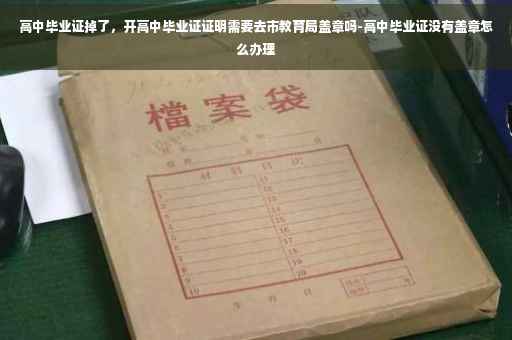 高中毕业证掉了，开高中毕业证证明需要去市教育局盖章吗-高中毕业证没有盖章怎
么办理
檔案袋
材料目次
1
2
3
4
5
6
7
8
9
10
11
12
13
14
15
16
17
18
19
20
年 月 日